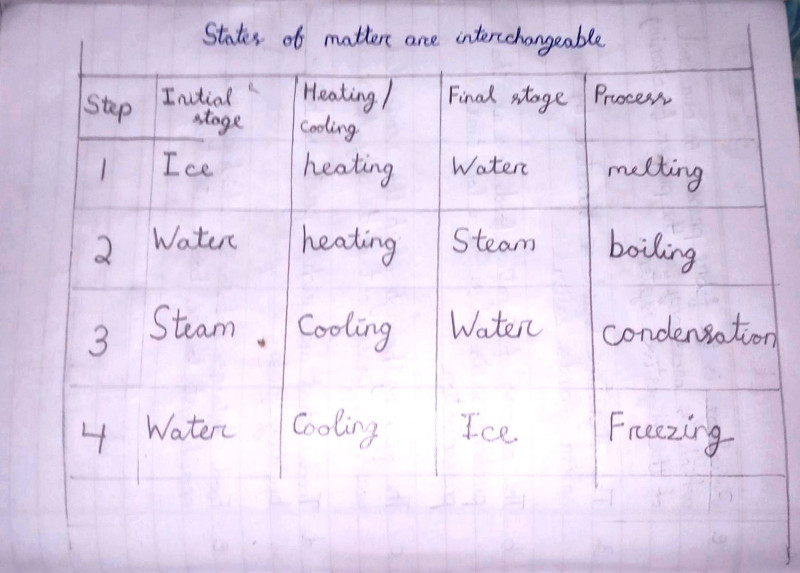 States of matter are interchangeable
Step Initial stage Heating/ Cooling Final stage Process
1 Ice heating Water melting
2 Water heating Steam boiling
3 Steam Cooling Water condensation
4 Water Cooling Ice Freezing